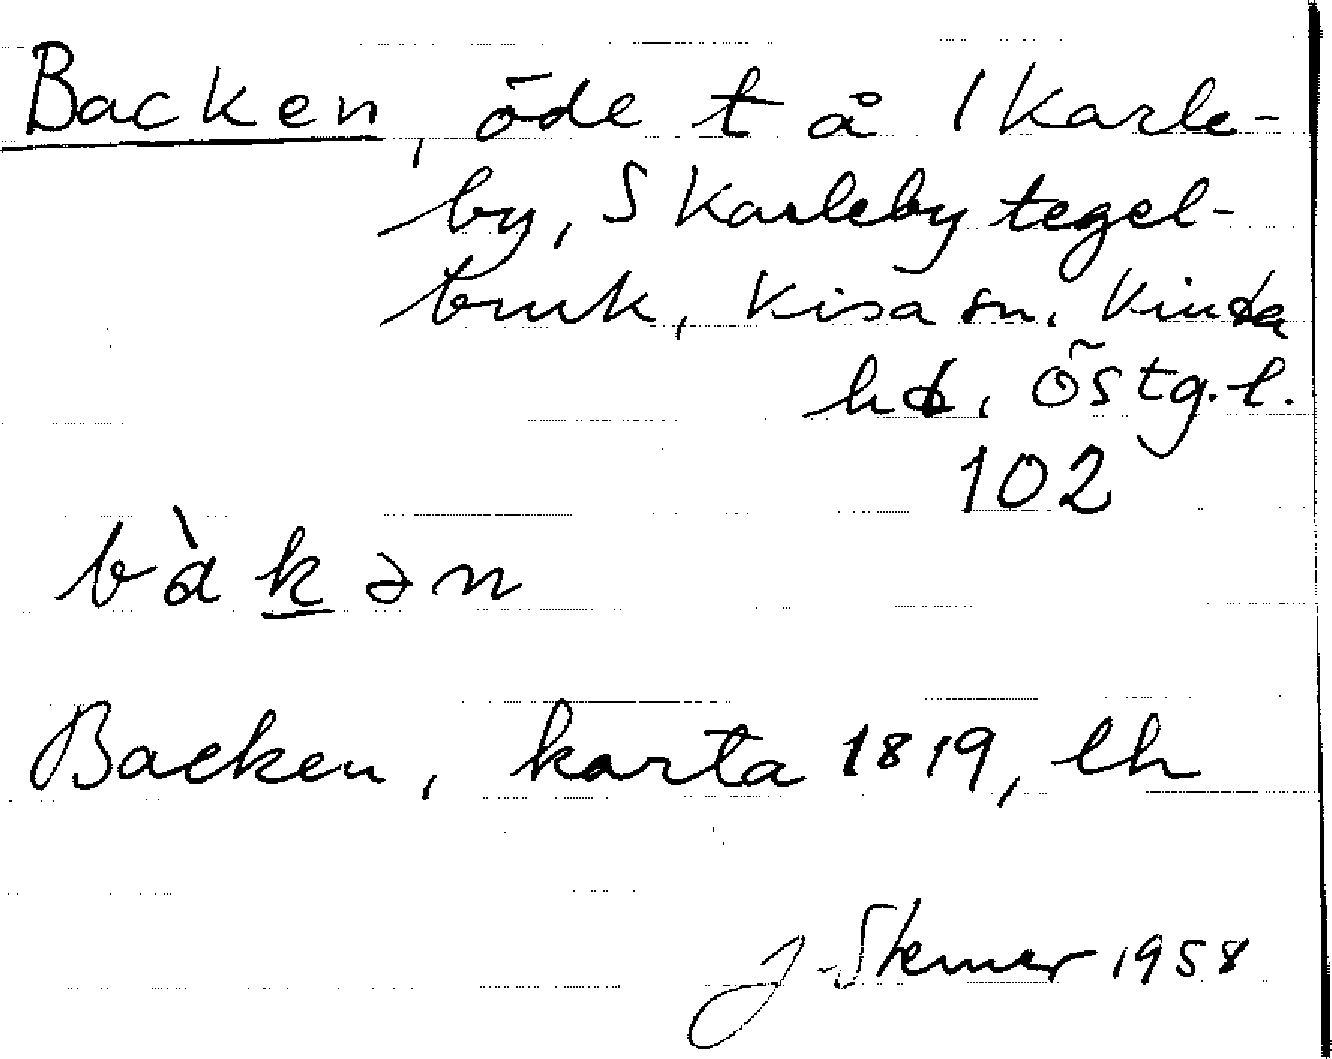 Backen, öde t å 1 Karle-
by, S Karleby tegel-
bruk, Kisa sn. Kinda
hd, Östg.l.
102
bàkən
Backen, karta 1819, lh
J. 1958